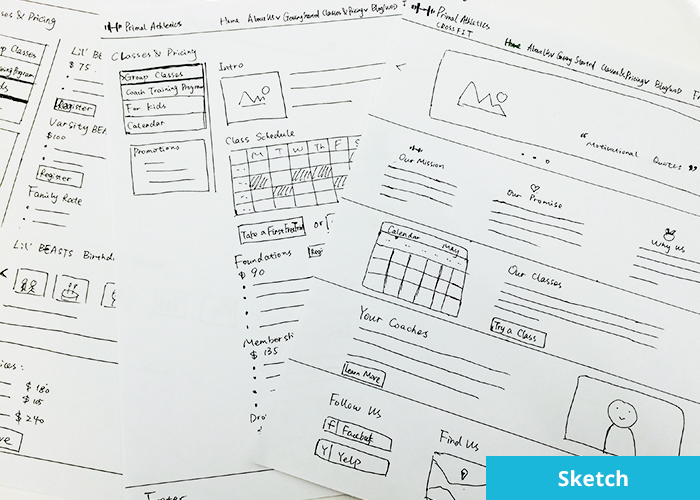 & Pricing
Classes
Lil' BE
$ 75
Register
Varsity BEA
$100
Register
Family Rate
Lil' BEASTS Birthda
$ 180
$ 240
Primal Athletics
Home About Us Classes & Pricing Blog/WOD
Classes & Pricing
Group Classes
Coach Training Program
For Kids
Calendar
Promotions
Intro
Class Schedule
M T W Th F S
Take a First Free
or
Foundations
$ 90
Membershi
$ 135
Dro
Primal Athletics
CROSSFIT
Home About Us Getting Started Classes & Pricing Blog/WOD
" Motivational Quotes "
Our Mission
Our Promise
Why us
Calendar May
Our Classes
Try a Class
Your Coaches
Learn More
Follow Us
f Facebook
Y Yelp
Find Us
Sketch